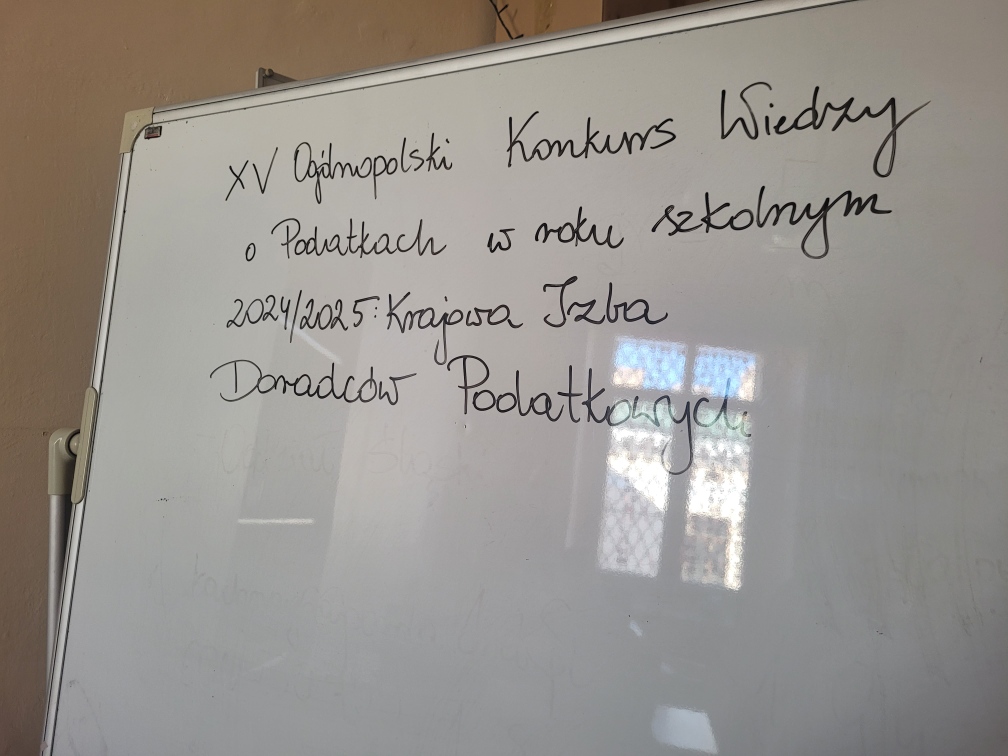 XV Ogólnopolski Konkurs Wiedzy
o Podatkach w roku szkolnym
2024/2025: Krajowa Izba
Doradców Podatkowych